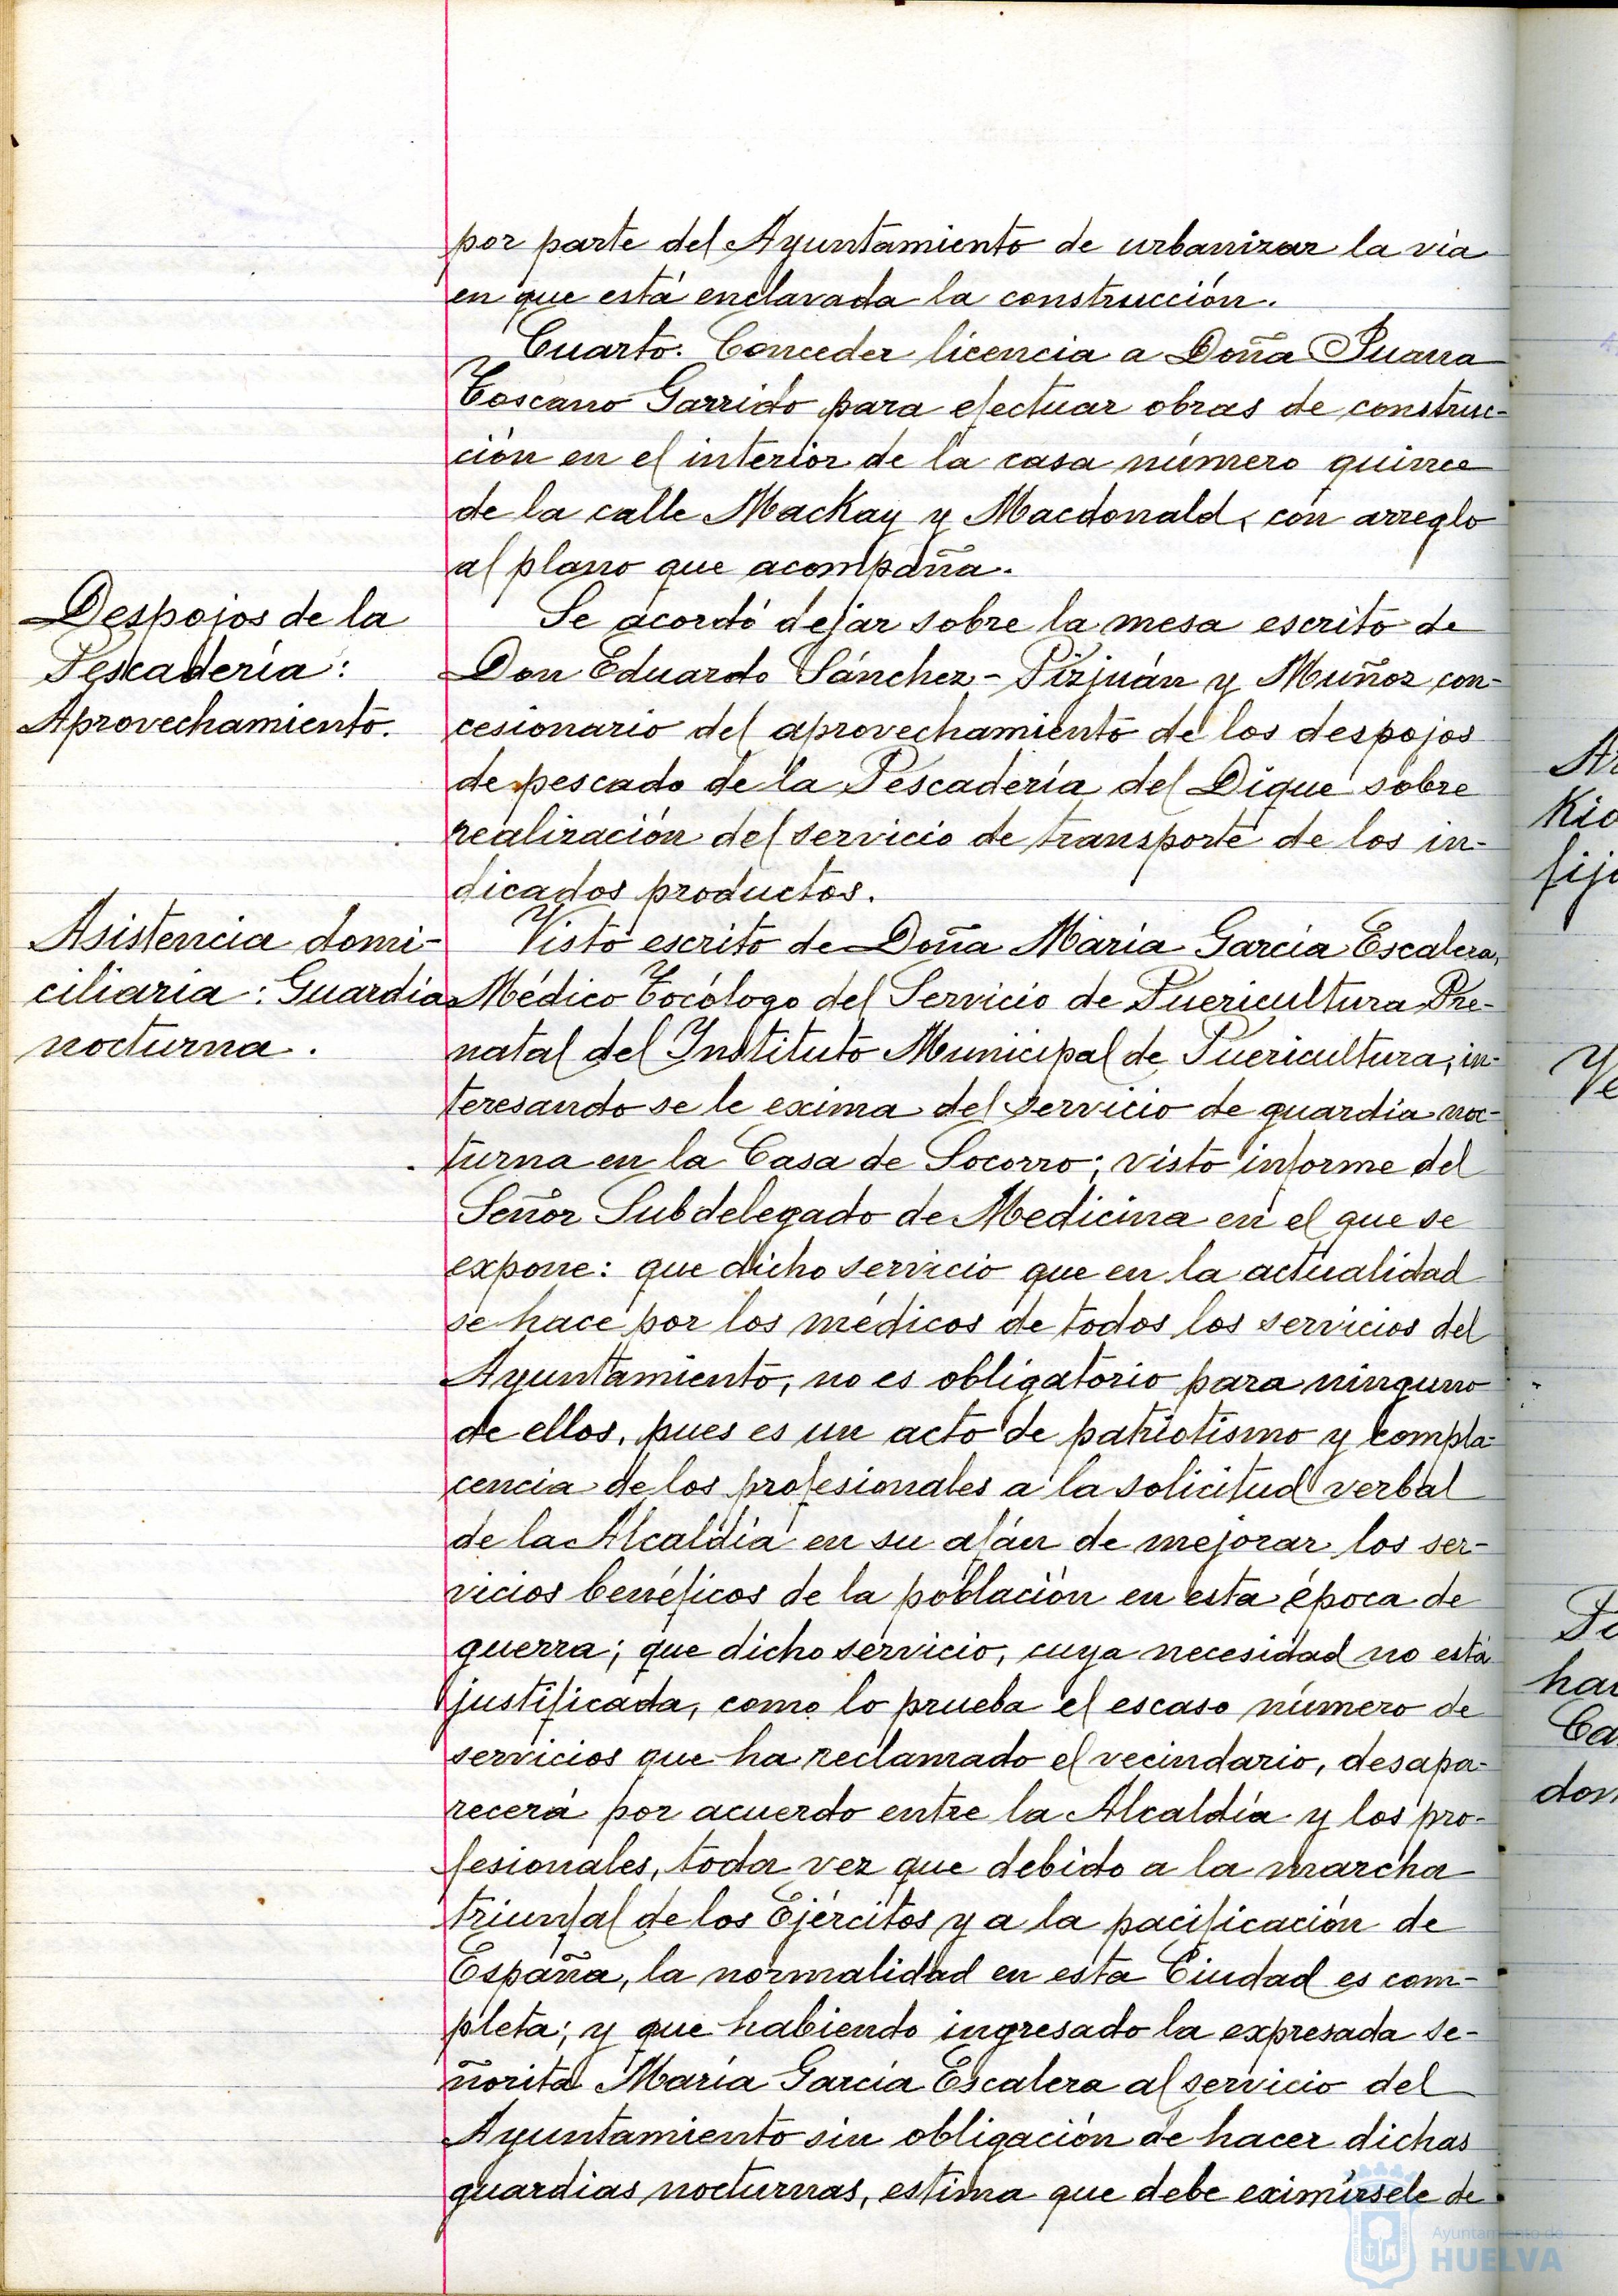 por parte del Ayuntamiento de urbanizar la vía
en que está enclavada la construcción.
Cuarto. Conceder licencia a Doña Juana
Toscano Garrido para efectuar obras de construc-
ción en el interior de la casa número quince
de la calle Mackay y Macdonald, con arreglo
al plano que acompaña.
Despojos de la
Pescadería:
Aprovechamiento.
Se acordó dejar sobre la mesa escrito de
Don Eduardo Sánchez-Pizjuán y Muñoz con-
cesionario del aprovechamiento de los despojos
de pescado de la Pescadería del Dique sobre
realización del servicio de transporte de los in-
dicados productos.
Asistencia domi-
ciliaria: Guardia
nocturna.
Visto escrito de Doña María García Escalera,
Médico Tocólogo del Servicio de Puericultura Pre-
natal del Instituto Municipal de Puericultura, in-
teresando se le exima del servicio de guardia noc-
turna en la Casa de Socorro; visto informe del
Señor Subdelegado de Medicina en el que se
expone: que dicho servicio que en la actualidad
se hace por los médicos de todos los servicios del
Ayuntamiento, no es obligatorio para ninguno
de ellos, pues es un acto de patriotismo y compla-
cencia de los profesionales a la solicitud verbal
de la Alcaldía en su afán de mejorar los ser-
vicios benéficos de la población en esta época de
guerra; que dicho servicio, cuya necesidad no está
justificada, como lo prueba el escaso número de
servicios que ha reclamado el vecindario, desapa-
recerá por acuerdo entre la Alcaldía y los pro-
fesionales, toda vez que debido a la marcha
triunfal de los Ejércitos y a la pacificación de
España, la normalidad en esta Ciudad es com-
pleta; y que habiendo ingresado la expresada se-
ñorita María García Escalera al servicio del
Ayuntamiento sin obligación de hacer dichas
guardias nocturnas, estima que debe eximírsele de
Ayuntamiento de
HUELVA